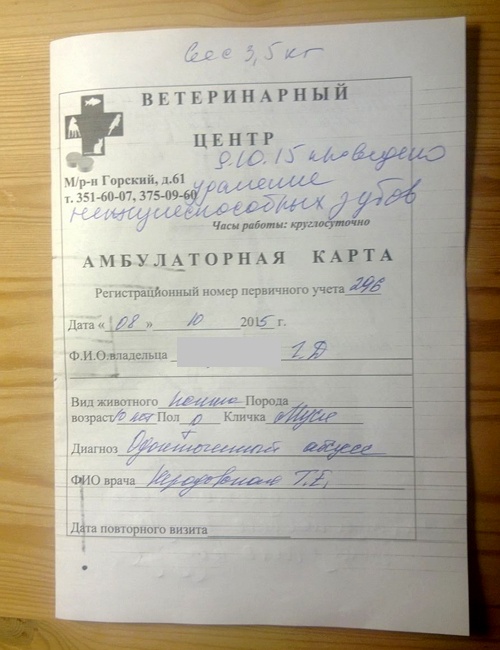 Вес 3,5 кг
ВЕТЕРИНАРНЫЙ
ЦЕНТР
9.10.15 проведено
М/р-н Горский, д.61 удаление
т. 351-60-07, 375-09-60
нежизнеспособных зубов
Часы работы: круглосуточно
АМБУЛАТОРНАЯ КАРТА
Регистрационный номер первичного учета 296
Дата « 08 » 10 2015 г.
Ф.И.О.владельца Г.Д
Вид животного кошка Порода
возраст 10 лет Пол ♀ Кличка Муся
Диагноз Одонтогенный абсцесс
ФИО врача Т.Е.
Дата повторного визита